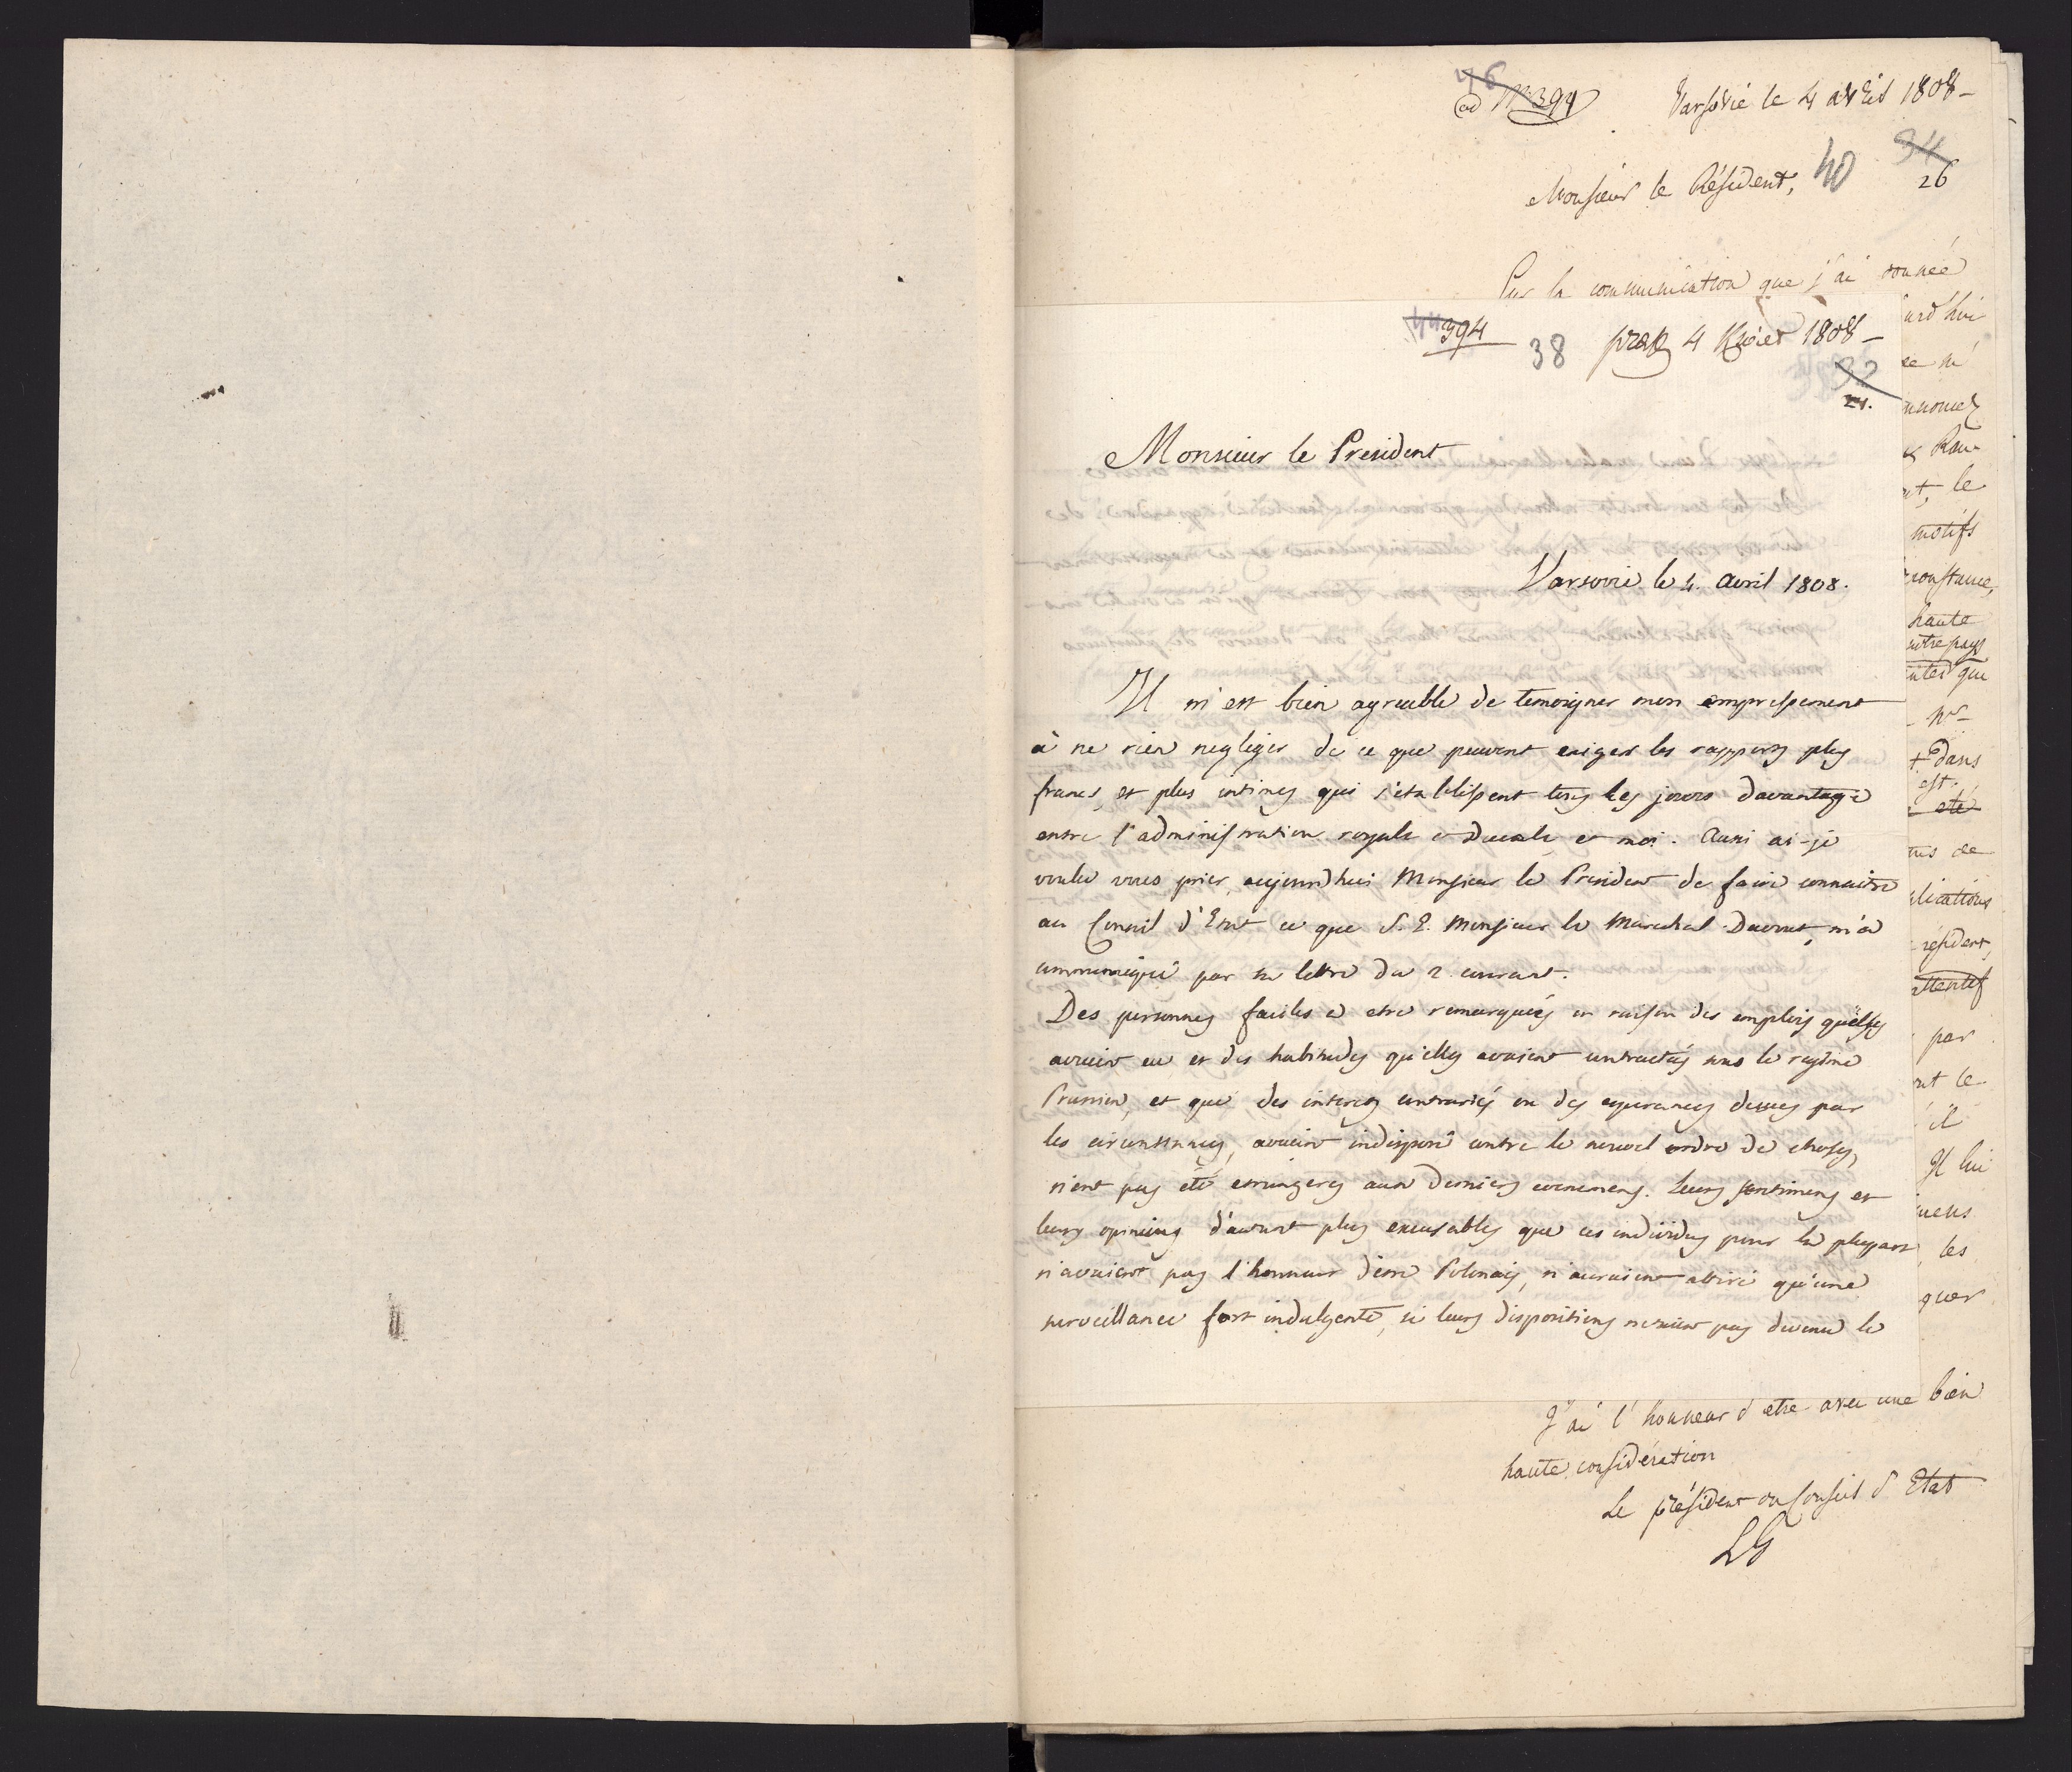 46
ad N 394
Varsovie le 4 avril 1808 -
Monsieur le Résident, 40
34
26
Sur la communication que j'ai donnée
394
38 praes 4 Kwiet 1808 -
32
21.
Monsieur le President
Varsovie le 4. avril 1808.
Il m'est bien agreable de temoigner mon empressement
à ne rien negliger de ce que peuvent exiger les rapports plus
francs, et plus intimes qui s'etablissent tous les jours davantage
entre l'administration royale et Ducale et moi. Aussi ai-je
voulu vous prier aujourdhui Monsieur le President de faire connaitre
au Conseil d'Etat ce que S. E. Monsieur le Marechal Davout, m'a
communiqué par sa lettre du 2 courant.
Des personnes faciles à etre remarquées en raison des emplois qu'elles
avaient eu et des habitudes qu'elles avaient contractées sous le regime
Prussien, et que des interets contrariés ou des esperances deçues par
les circonstances, avaient indisposé contre le nouvel ordre de choses,
n'ont pas été etrangeres aux derniers evenemens. Leurs sentimens et
leurs opinions d'autant plus excusables que ces individus pour la plupart
n'avaient pas l'honneur d'etre Polonais, n'auraient attiré qu'une
surveillance fort indulgente, si leurs dispositions n'etaient pas devenu le
urd'hui
ce ni
nnoncez
Rou
nt, le
motifs
constance,
haute
autre pays
utes que
dans
est
été
tres de
plications
résident,
attentif
par
nt le
il
Il lui
mens
les
quer
J'ai l'honneur d'etre avec une bien
haute considération
Le président du Conseil d'Etat
LG